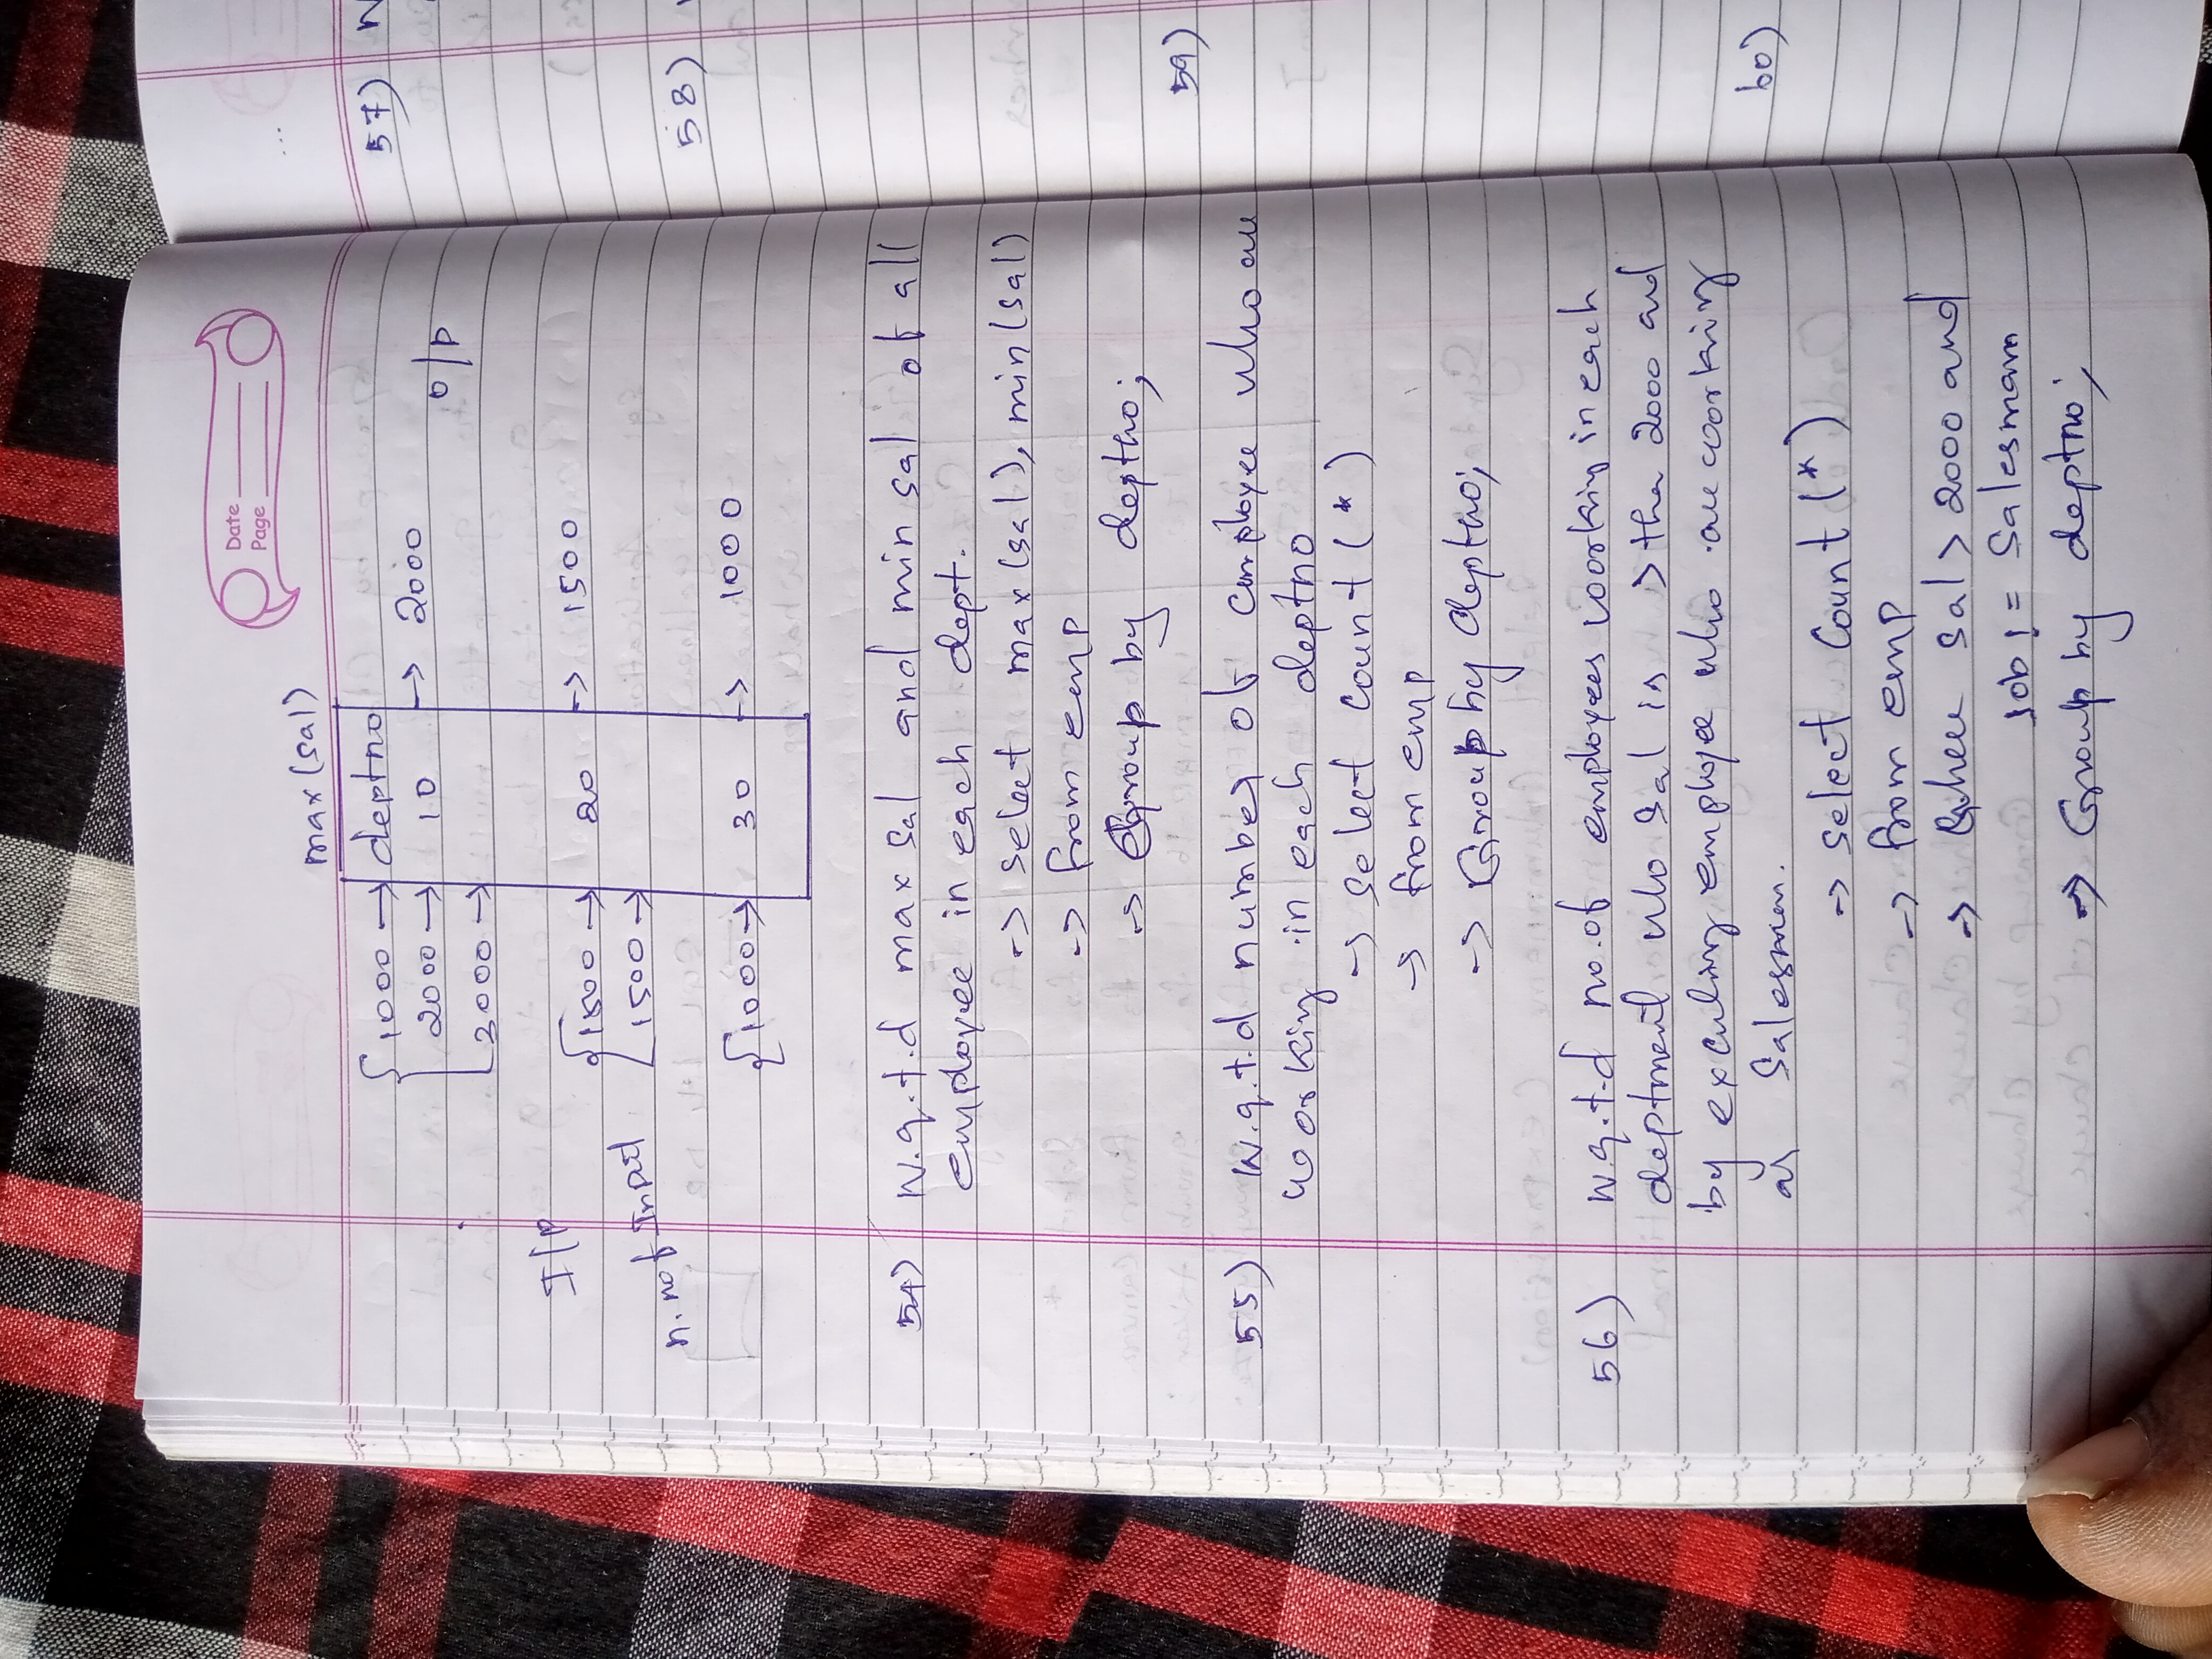 Date
Page
max(sal)
O/P
{1000 → deptno
2000 → 10 → 2000
2000 →
I/P
{1500 → 20 → 1500
1500 →
n. no of Input
{1000 → 30 → 1000
54) W.q.t.d max sal and min sal of all
employee in each dept.
→ select max(sal), min(sal)
→ from emp
→ Group by deptno;
55) W.q.t.d number of employee who are
working in each deptno
→ select count(*)
→ from emp
→ Group by deptno;
56) W.q.t.d no. of employees working in each
deptment who sal is > then 2000 and
by exculing employee who are working
as Salesman.
→ select Count (*)
→ from emp
→ where sal > 2000 and
job != Salesmam
→ Group by deptno;
57)
58)
59)
60)